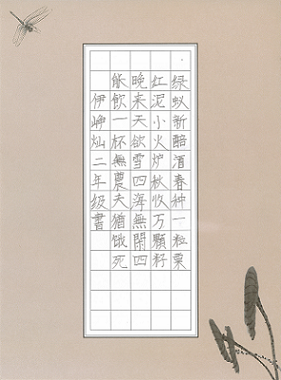 绿蚁新醅酒春种一粒粟
红泥小火炉秋收万顆籽
晚来天欲雪四海無閑四
能飲一杯無農夫猶饿死
伊峥灿二年级書